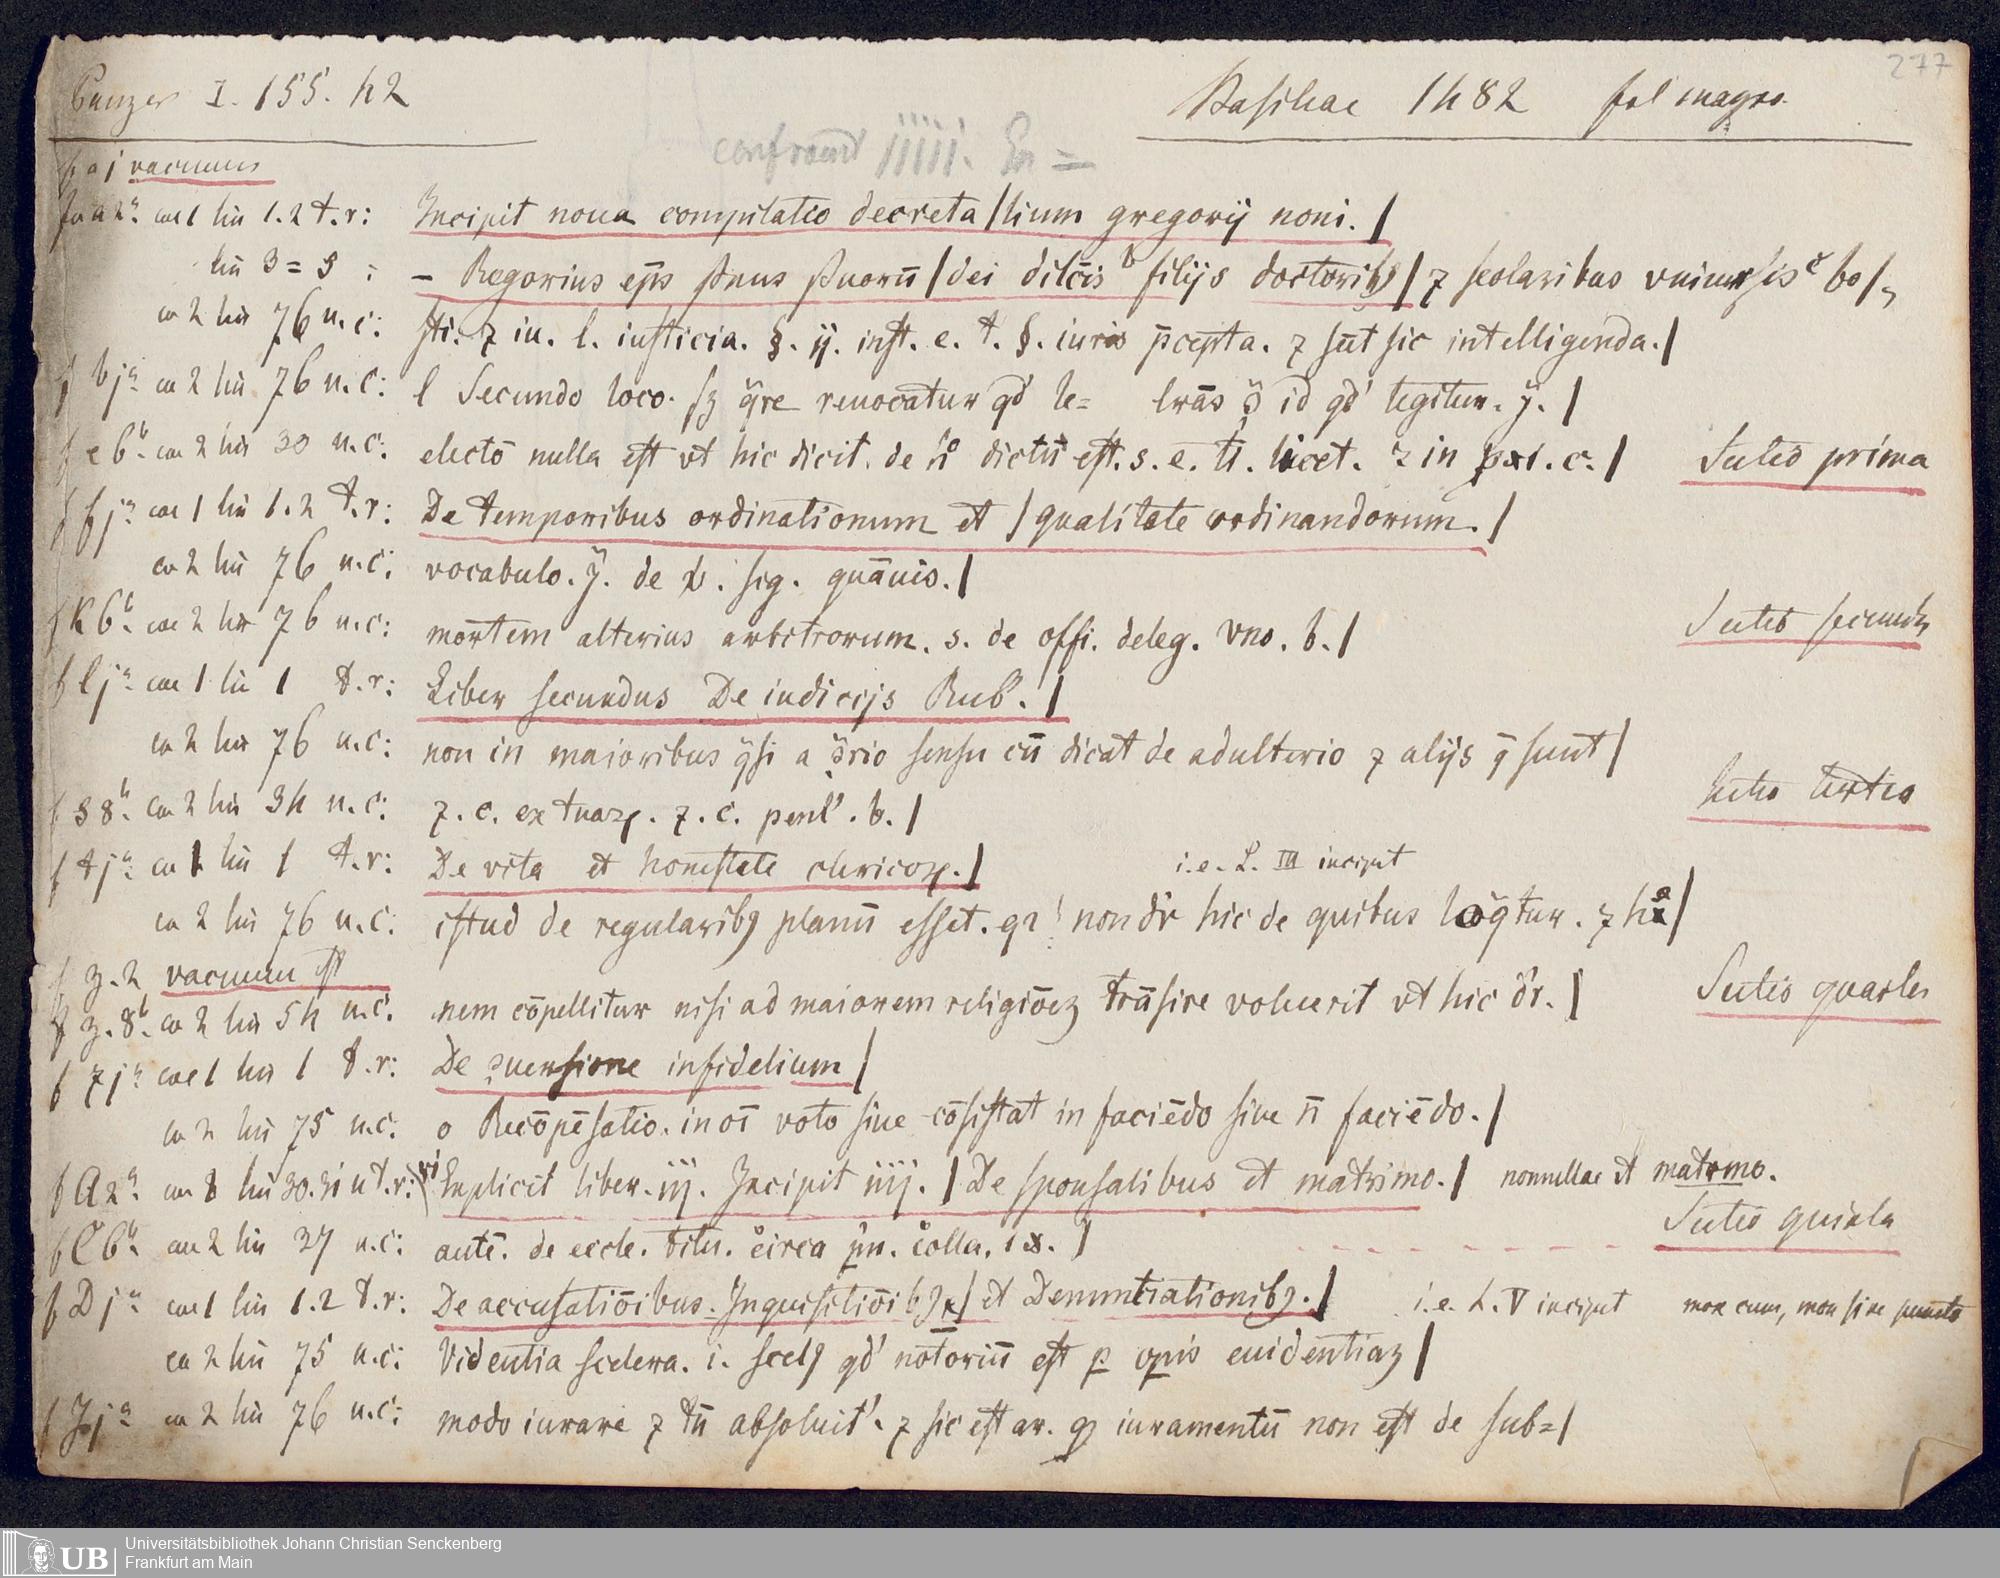 Panzer I. 155. 42
Basileae 1482 fol magno.
277
confront iiiii. En =
f a j vacuum
fu a 2ª. col 1 lin 1.2 t.r: Incipit noua compilatio decreta/lium gregorij noni. /
lin 3=5 : – Regorius ep̄s seruus seruorū / dei dilc̄is filijs doctorib9 / ⁊ scolaribus vniuersis bo/
co 2 lin 76 u.c: sti. ⁊ iu. l. iusticia. §. ij. inst. e. t. §. iuris p̄cepta. ⁊ sūt sic intelligenda. /
f bjª co 2 lin 76 u.c: l Secundo loco. sʒ q̄re reuocatur qd' le= lrās ꝯ id qd' legitur. ẏ. /
f e 6ᵇ. co 2 lin 30 u.c: electō nulla est vt hic dicit. de h° dictū est. s. e. ti. licet. ⁊ in pxi. c. / Sectio prima
f fjª co 1 lin 1.2 t.r: De temporibus ordinationum et / qualitate ordinandorum. /
co 2 lin 76 u.c: vocabulo. ẏ. de v. sig. quāuis. /
f k6ᵇ. co 2 lin 76 u.c: mortem alterius arbitrorum. s. de offi. deleg. vno. b. / Sectio secunda
f ljª co 1 lin 1 t.r: Liber secundus De iudicijs Rub'. /
co 2 lin 76 u.c: non in maioribus q̄si a ꝯrio sensu cū dicat de adulterio ⁊ alijs q̄ sunt /
f s8ᵇ. co 2 lin 34 u.c: ⁊. c. ex tuaꝝ. ⁊. c. penl'. b. / Sectio tertia
f tjª. co 1 lin 1 t.r: De vita et honestate clericoꝝ. / i.e. L. III incipit
co 2 lin 76 u.c: istud de regularib9 planū esset. qr non dr̄ hic de quibus loq̄tur. ⁊ h° /
f z. 2 vacuum est
f z. 8ᵇ. co 2 lin 54 u.c. nem cōpellitur nisi ad maiorem religiōeʒ trāsire voluerit vt hic dr̄. / Sectio quarta
f ⁊jª co 1 lin 1 t.r: De ꝯuersione infidelium /
co 2 lin 75 u.c: o Recōpēsatio. in oī voto siue cōsistat in faciēdo siue n̄ faciēdo. /
f A2ª. co lin 30.31 u t.r: Explicit liber. iij. Incipit iiij. / De sponsalibus et matrimo. / nonnullae et matrmo.
f C6ᵇ. co 2 lin 37 u.c: autē. de eccle. titu. circa pn. colla. ix. / Sectio quinta
f Djª co 1 lin 1.2 t.r: De accusatiōibus. Inquisitiōib9 / et Denuntiationib9. / i.e. L. V incipit mox cum, mox sine puncto
co 2 lin 75 u.c: Videntia scelera. i. scel9 qd' notoriū est ꝑ opis euidentiaʒ /
f Jjª co 2 lin 76 u.c: modo iurare ⁊ tū absoluit'. ⁊ sic est ar. qʒ iuramentū non est de sub=/
UB Universitätsbibliothek Johann Christian Senckenberg
Frankfurt am Main